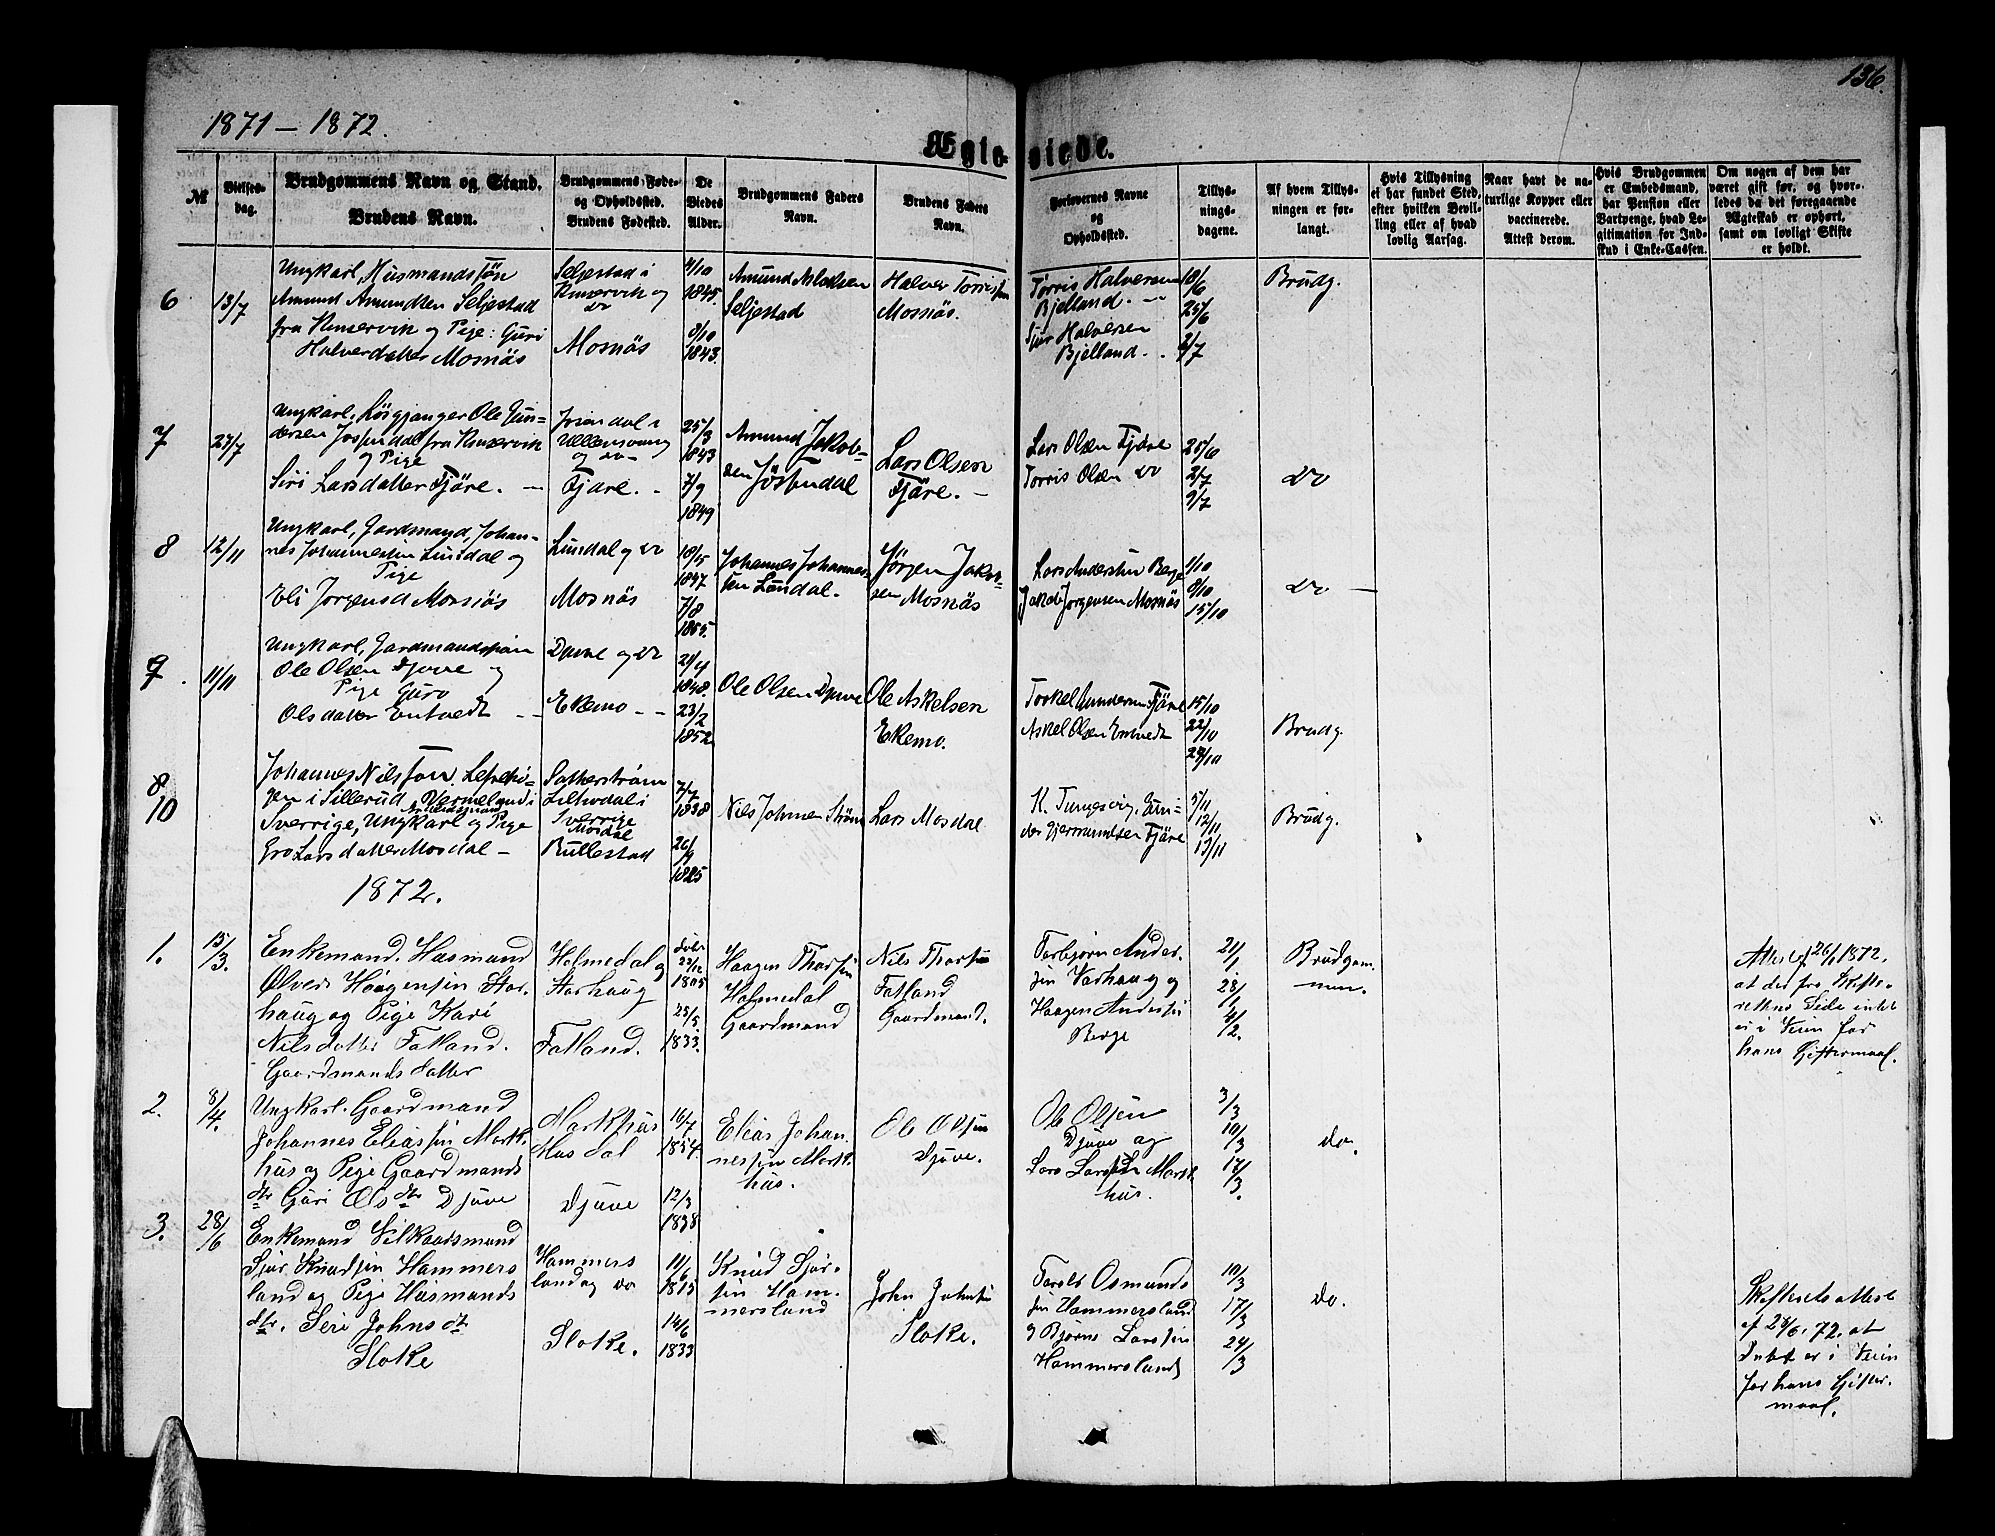 136.
1871 – 1872.
Ægte-viede.
№
Vielses-
dag.
Brudgommens Navn og Stand.
Brudens Navn.
Brudgommens Føde-
og Opholdsted.
Brudens Fødested.
De
Viedes
Alder.
Brudgommens Faders
Navn.
Brudens Faders
Navn.
Forlovernes Navne
og
Opholdssted.
Tillys-
nings-
dagene.
Af hvem Tillys-
ningen er for-
langt.
Hvis Tillysning
ei har fundet Sted,
efter hvilken Bevil-
ling eller af hvad
lovlig Aarsag.
Naar havt de na-
turlige Kopper eller
vaccinerede.
Attest derom.
Hvis Brudgommen
er Embedsmand,
har Pension eller
Vartpenge, hvad Le-
gitimation for Ind-
skud i Enke-Cassen.
Om nogen af dem har
været gift før, og hvor-
ledes da det foregaaende
Ægteskab er ophørt,
samt om lovligt Skifte
er holdt.
6
13/7
Ungkarl, Husmandssøn
Amund Amundsen Seljestad
fra Kinservik og Pige: Guri
Halverdatter Mosnäs
Seljestad i
Kinservik og
do
Mosnäs
4/10
1845.
8/10
1843.
Amund Aslaksen
Seljestad
Halver Torressen
Mosnäs.
Torris Halversen
Bjelland. –
Sjur Halversen
Bjelland. .
18/6
25/6
2/7
Brudg.
7
27/7
Ungkarl, Løsgjænger Ole Gun-
dersen Jøsendal fra Kinservik
og Pige
Siri Larsdatter Fjäre. –
Jøsendal i
Ullensvang
og do-
Fjære. –
25/3
1843
7/9
1849
Amund Jakob-
sen Jøsendal
Lars Olsen
Fjäre. –
Lars Olsen Fjäre
Torris Olsen do
25/6
2/7
9/7
do
8
12/11
Ungkarl, Gardmand, Johan-
nes Johannessen Lundal og
Pige
Eli Jørgensd Mosnäs
Lundal og do
Mosnäs
18/15
1847.
7/8
1855.
Johannes Johannes-
sen Lundal.
Jørgen Jakob-
sen Mosnäs
Lars Anderssen Berge
Jakob Jørgensen Mosnäs
1/10
8/10
15/10
do –
9.
11/11
Ungkarl, Gardmandssøn
Ole Olsen Djuve og
Pige Guro
Olsdatter Entvedt – –
Djuve og do
Ekemo – –
21/4
1848.
23/2
1852
Ole Olsen Djuve
Ole Askelsen
Ekemo.
Torkel Gundersen Fjäre
Askel Olsen Entvedt
15/10
22/10
29/10
Brudg.
8
10
Johannes Nilsson
gen i Sillerud Vermeland i
Arbeidsmand
Sverrige, Ungkarl og Pige
Gro Larsdatter Mosdal –
i
Sverrige
Mosdal
Rullestad
7/7
1838
26/9
1825
Nils Johnsen Strøm
Lars Mosdal
K. Tungesvig, Gun-
der Gjermundsen Fjäre
5/11
12/11
13/11
Brudg.
1872.
1.
15/3.
Enkemand. Husmand
Ølver Haagensen Stor-
haug og Pige Kari
Nilsdatter Fatland.
Gaardmands datter
Holmedal og
Storhaug
Fatland.
døbt
23/12
1805
23/5
1833.
Haagen Thorsen
Holmedal
Gaardmand
Nils Thorsen
Fatland
Gaardmand.
Torbjørn Ander-
sen Varhaug og
Haagen Andersen
Berge
21/1
28/1
4/2.
Brudgom-
men.
Attest af 26/1 1872.
at der fra Skifte-
rettens Side intet
er i Veien for
hans Giftermaal.
2.
8/4.
Ungkarl. Gaardmand
Johannes Eliassen Mark-
hus og Pige Gaardmands
dtr Guri Ols dtr Djuve
Markhus
Musdal
Djuve
16/7
1854.
12/3
1838
Elias Johan-
nessen Mark-
hus.
Ole Olsen
Djuve.
Ole Olsen
Djuve og
Lars Larsen Mark-
hus.
3/3
10/3
17/3.
do.
3.
28/6
Enkemand Vilkaarsmand
Sjur Knudsen Hammers-
land og Pige Husmands
dtr. Seri Johns dtr
Sloke
Hammers
land og do
Sloke.
11/6
1815
14/6
1833
Knud Sjur-
sen Ham-
mersland
John Johnsen
Sloke.
Osmunds-
sen Hammersland
og Bjørne Larssen
Hammersland
10/3
17/3
24/3
do.
Skifterets attest
af 28/6. 72. at
Intet er i Veien
for hans Gifter-
maal.